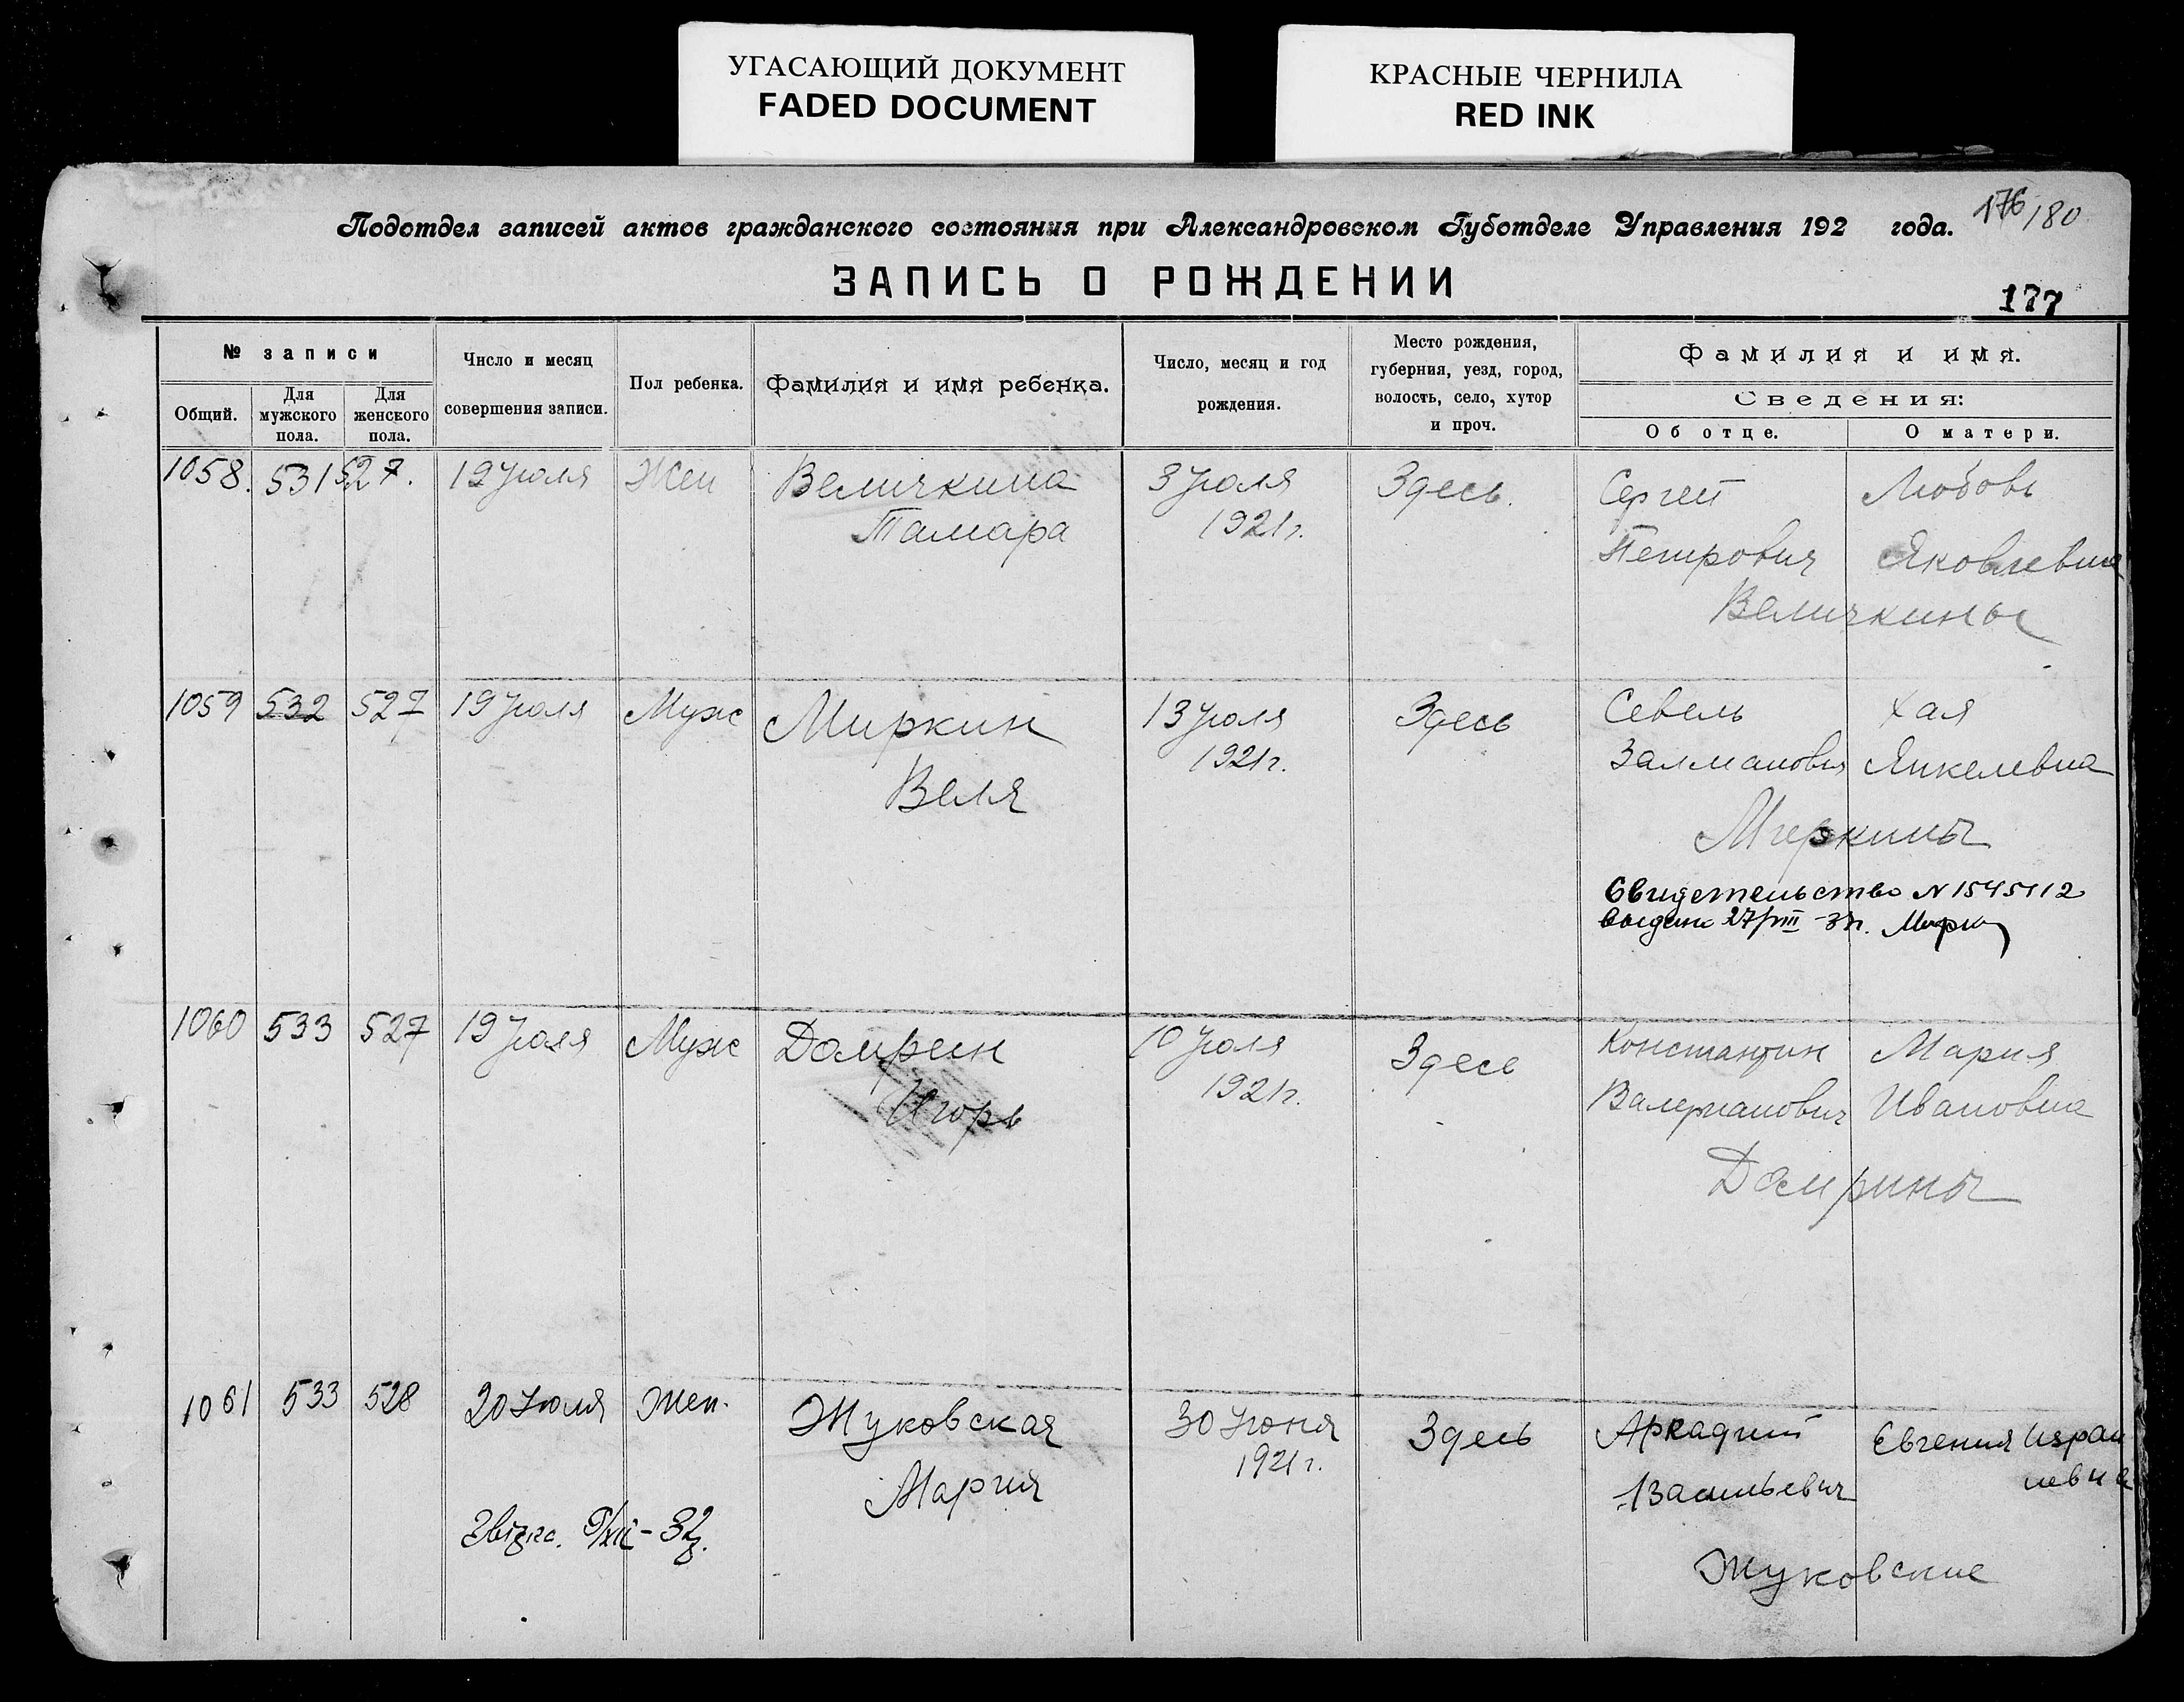 УГАСАЮЩИЙ ДОКУМЕНТ
FADED DOCUMENT
КРАСНЫЕ ЧЕРНИЛА
RED INK
176/180
Подотдел записей актов гражданского состояния при Александровском Губотделе Управления 192 года.
ЗАПИСЬ О РОЖДЕНИИ
177
№ записи
Общий.
Для мужского пола.
Для женского пола.
Число и месяц
совершения записи.
Пол ребенка.
Фамилия и имя ребенка.
Число, месяц и год
рождения.
Место рождения,
губерния, уезд, город,
волость, село, хутор
и проч.
Фамилия и имя.
Сведения:
Об отце.
О матери.
1058. 531 527. 19 Июля Жен Величкина 3 Июля Здесь. Сергей Любовь
Тамара 1921 г. Петрович Яковлевна
Величкины
1059 532 527 19 Июля Муж Миркин 13 Июля Здесь Севель Хая
Веля 1921 г. Залманович Янкелевна
Миркины
Свидетельство N 1545112
выдано 27/VIII
1060 533 527 19 Июля Муж Домрин 10 Июля Здесь Константин Мария
Игорь 1921 г. Валерианович Ивановна
Домрины
1061 533 528 20 Июля Жен. Жуковская 30 Июня Здесь Аркадий Евгения Израи
Мария 1921 г. Васильевич левна
Жуковские